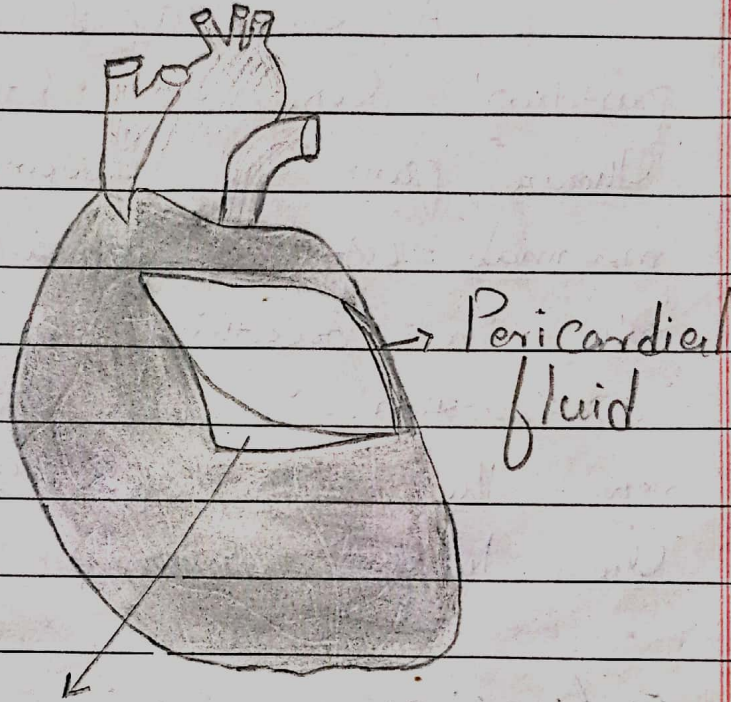 Pericardial
fluid